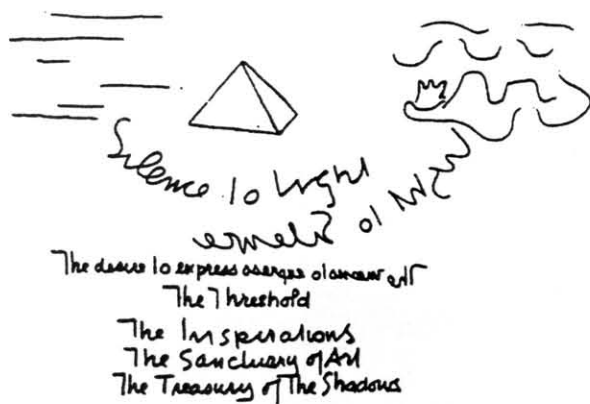 Silence to Light
Light to Silence
The desire to express
The Threshold
The Inspirations
The Sanctuary of Art
The Treasury of The Shadows